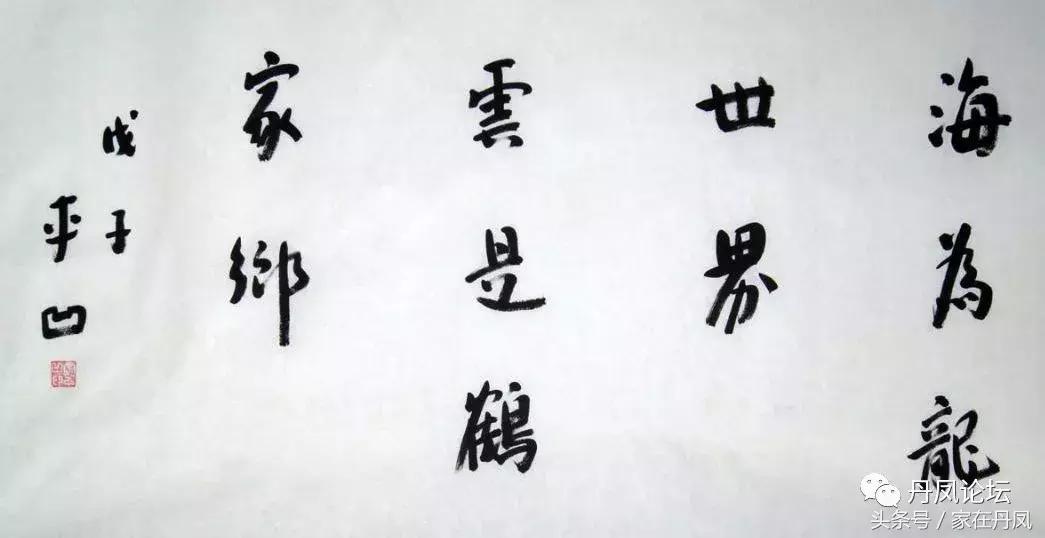 海為龍
世界
雲是鶴
家鄉
戊子
平凹
丹凤论坛
头条号／家在丹凤